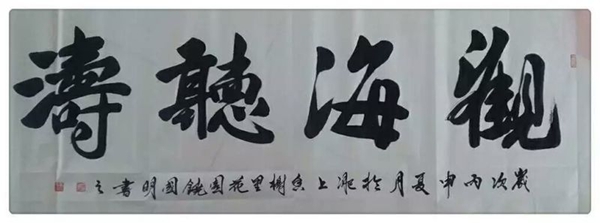 觀海聽濤
歲次丙申夏月於淝上魚棚里花園饒國明書之